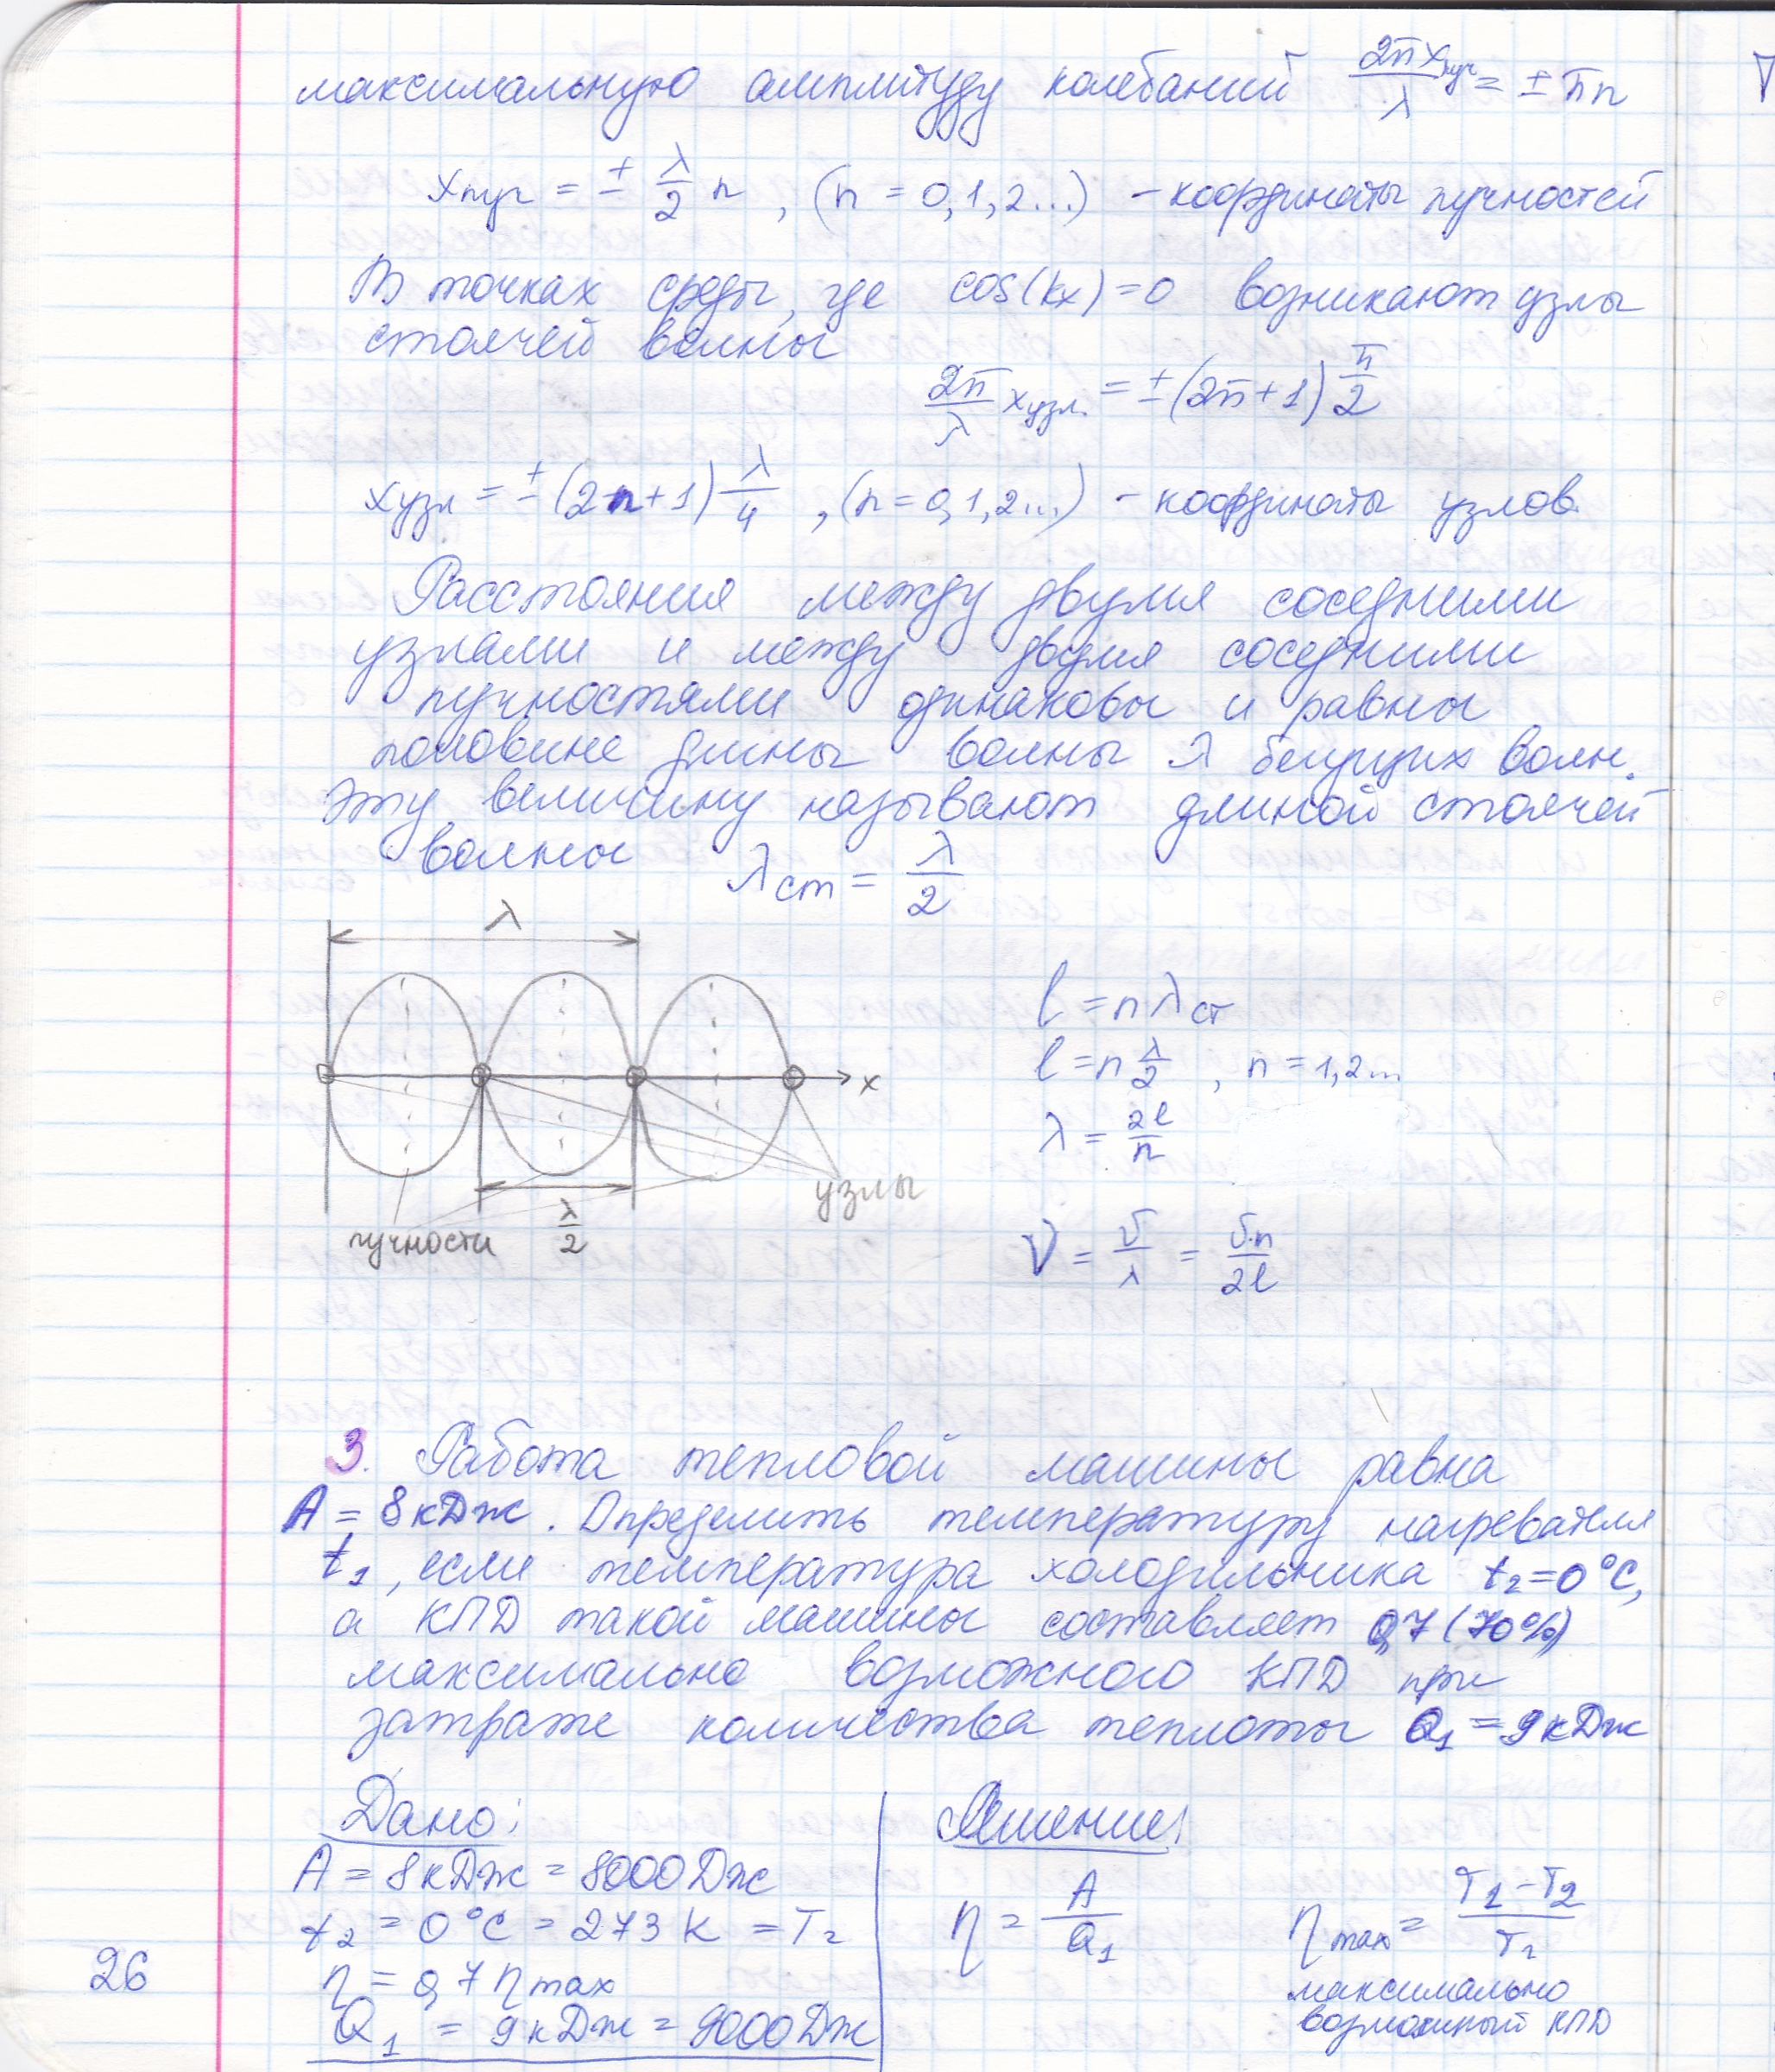 максимальную амплитуду колебаний 2πxпуч/λ = ± πn
xпуч = ± λ/2 n , (n = 0,1,2...) - координаты пучностей
В точках среды, где cos(kx)=0 возникают узлы
стоячей волны
2π/λ xузл. = ±(2n+1) π/2
xузл = ±(2n+1) λ/4 , (n=0,1,2...) - координаты узлов.
Расстояния между двумя соседними
узлами и между двумя соседними
пучностями одинаковы и равны
половине длины волны λ бегущих волн.
Эту величину называют длиной стоячей
волны λст = λ/2
λ
l = nλст
l = n λ/2 , n = 1,2...
x
λ = 2l/n
узлы
пучности λ/2
ν = υ/λ = υ·n/2l
3. Работа тепловой машины равна
A = 8 кДж. Определить температуру нагревателя
t1, если температура холодильника t2=0°C,
а КПД такой машины составляет 0,7 (70%)
максимально возможного КПД при
затрате количества теплоты Q1 = 9 кДж
Дано: Решение:
A = 8 кДж = 8000 Дж
t2 = 0°C = 273 K = T2
η = A/Q1 ηmax = T1-T2/T1
η = 0,7 ηmax
максимально
возможный КПД
Q1 = 9 кДж = 9000 Дж
26